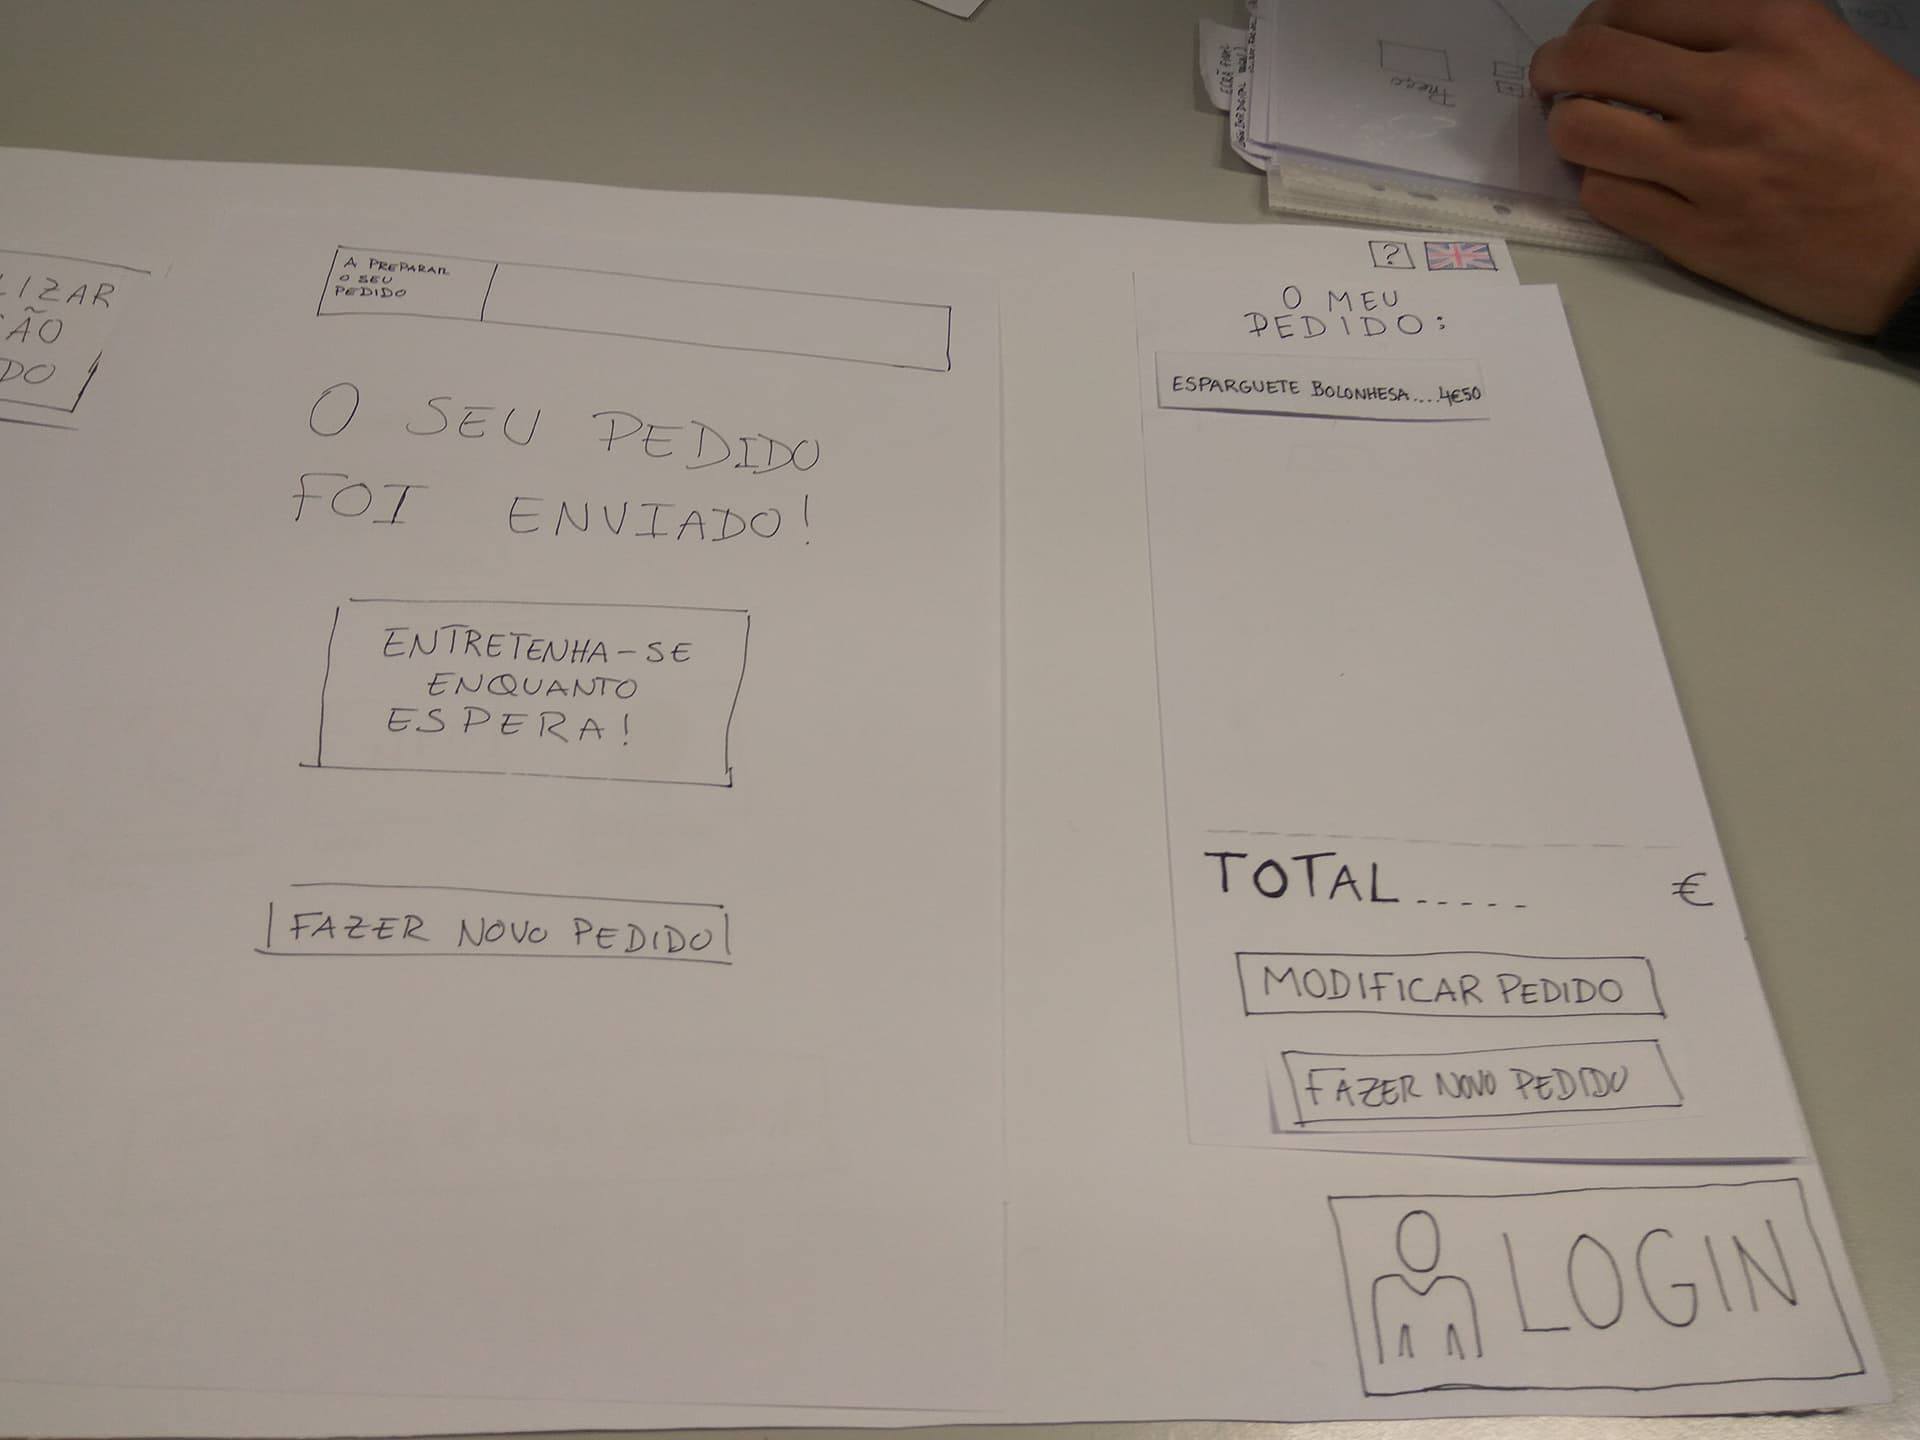 LIZAR
ÇÃO
DO
A PREPARAR
O SEU
PEDIDO
O SEU PEDIDO
FOI ENVIADO!
ENTRETENHA-SE
ENQUANTO
ESPERA!
FAZER NOVO PEDIDO
?
O MEU
PEDIDO:
ESPARGUETE BOLONHESA....4€50
TOTAL..... €
MODIFICAR PEDIDO
FAZER NOVO PEDIDO
LOGIN
Preço